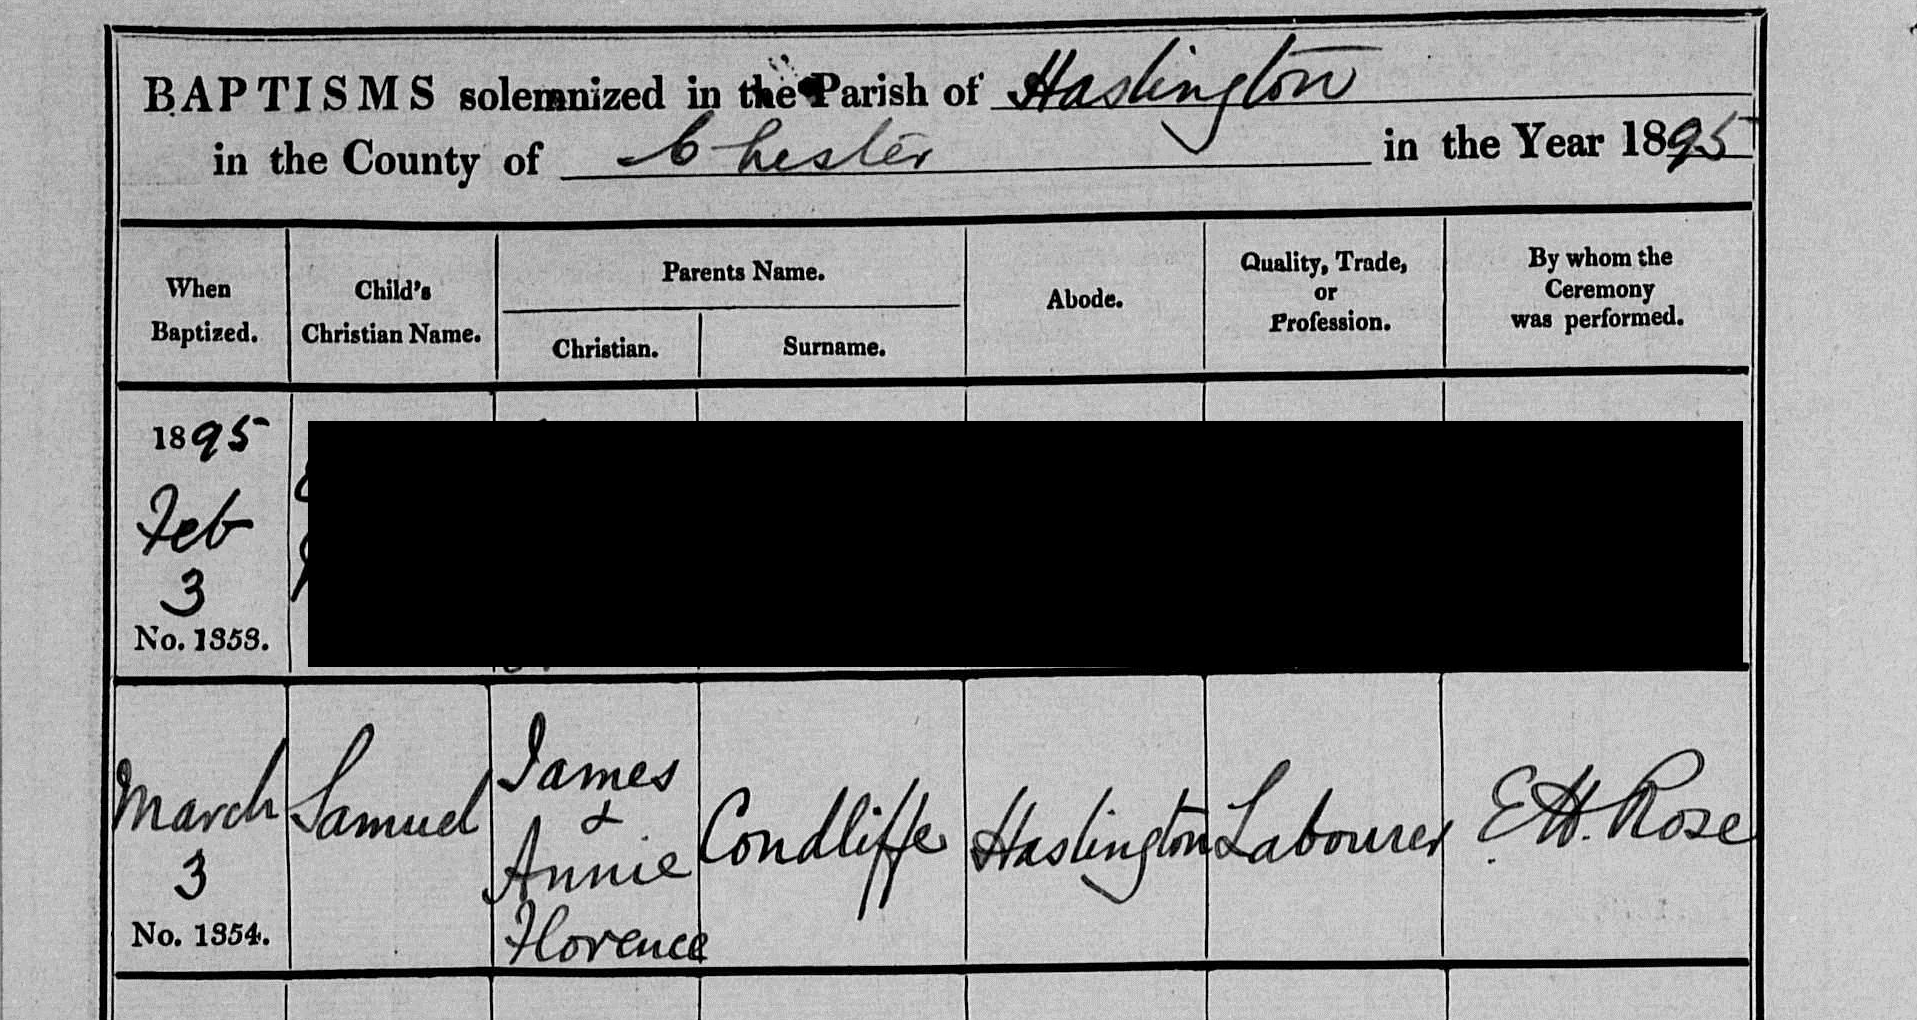 BAPTISMS solemnized in the Parish of Haslington
in the County of Chester in the Year 1895
When Baptized.
Child's Christian Name.
Parents Name.
Christian.
Surname.
Abode.
Quality, Trade, or Profession.
By whom the Ceremony was performed.
1895
Feb
3
No. 1353.
March
3
No. 1354.
Samuel
James
&
Annie
Florence
Condliffe
Haslington
Labourer
E.H. Rose